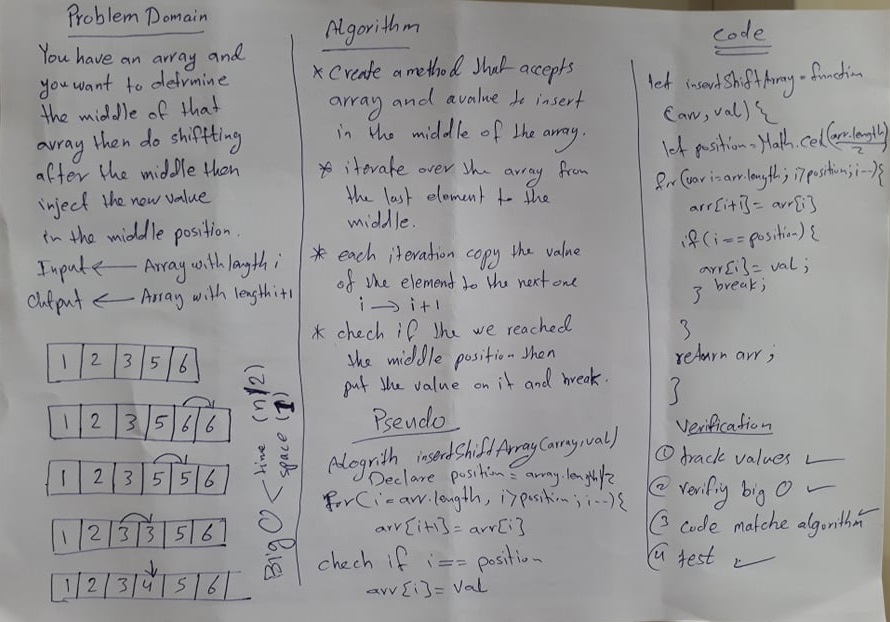 Problem Domain
You have an array and
you want to detrmine
the middle of that
array then do shiftting
after the middle then
inject the new value
in the middle position.
Input ← Array with length i
Output ← Array with length i+1
1 2 3 5 6
1 2 3 5 6 6
1 2 3 5 5 6
1 2 3 3 5 6
1 2 3 4 5 6
Big O < time (n/2)
space (1)
Algorithm
* Create a method that accepts
array and a value to insert
in the middle of the array.
* iterate over the array from
the last element to the
middle.
* each iteration copy the value
of the element to the next one
i → i+1
* chech if the we reached
the middle position then
put the value on it and break.
Pseudo
Alogrith insertShiftArray(array,val)
Declare position = array.length/2
for(i=arr.length, i>position; i--){
arr[i+1] = arr[i]
chech if i == position
arr[i] = val
Code
let insertShiftArray = function
(arr, val) {
let position = Math.ceil(arr.length/2)
for(var i=arr.length; i>position; i--){
arr[i+1] = arr[i]
if(i == position){
arr[i] = val;
} break;
}
return arr;
}
Verification
① track values ✓
② verifiy big O ✓
③ code matche algorithm ✓
④ test ✓